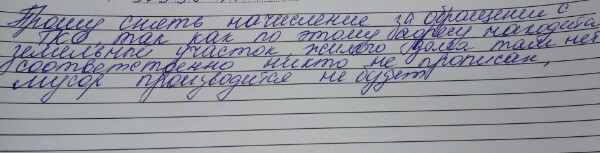 Прошу снять начисление за обращение с
ТКО так как по этому адресу находится
земельный участок, жилого дома там нет
соответственно никто не прописан,
мусор производится не будет